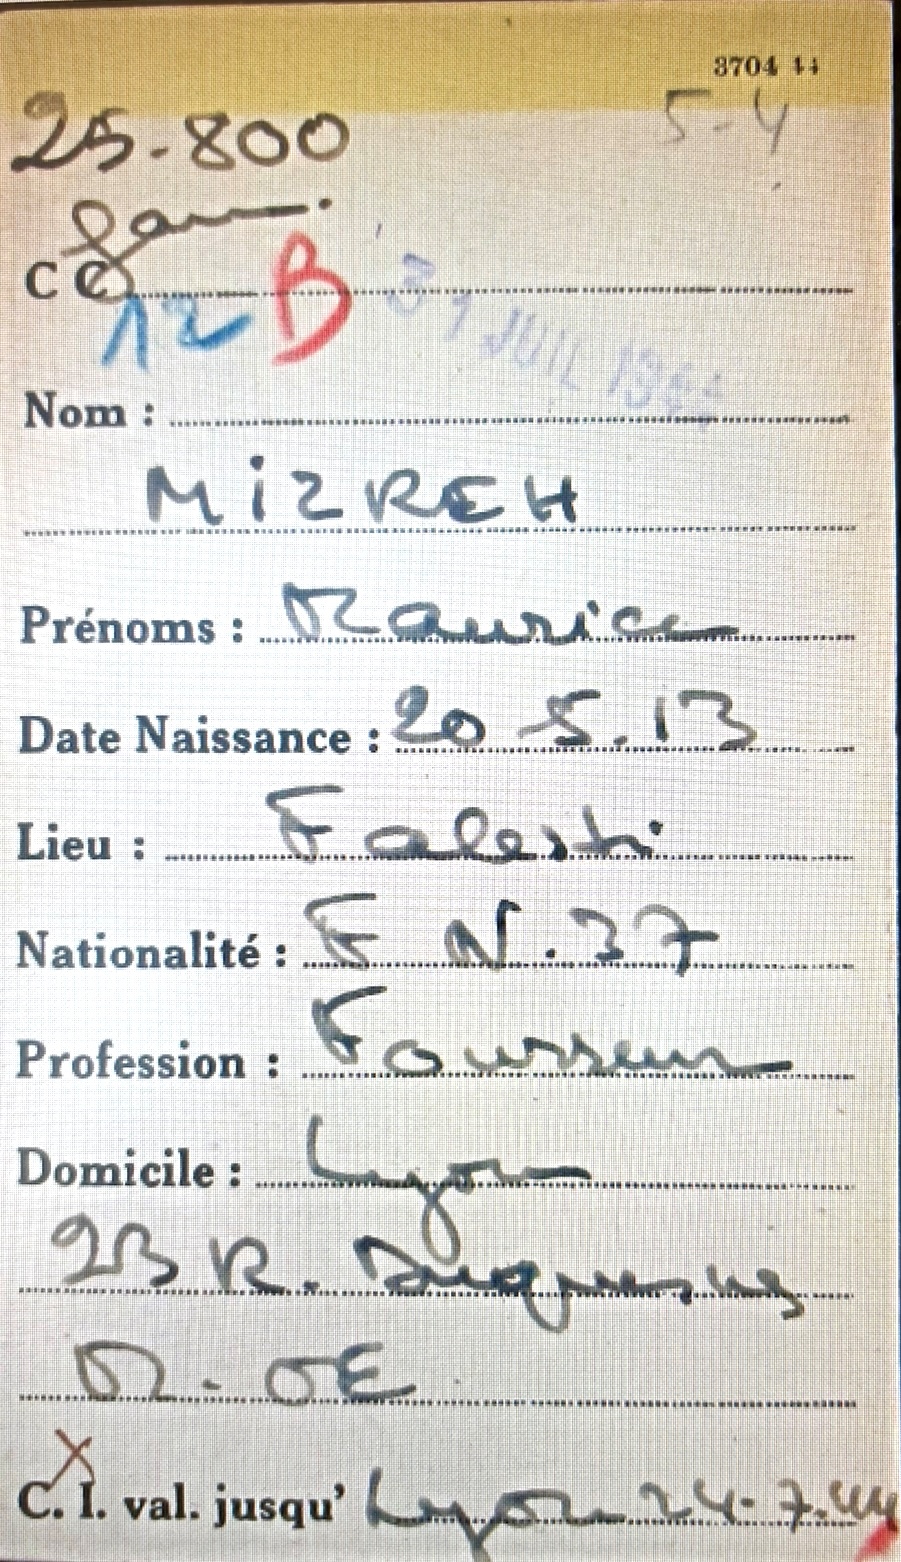 3704 44
25.800
5-4
CC
12 B 31 JUIL 194
Nom :
MIZREH
Prénoms : Maurice
Date Naissance : 20 5.13
Lieu : Falesti
Nationalité : F N.37
Profession : Fourreur
Domicile : Lyon
23 R. Duquesne
M. OE
C. I. val. jusqu' Lyon 24.7.44